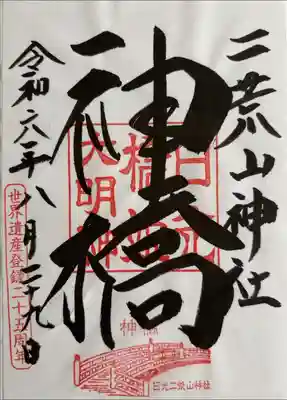 二荒山神社
神橋
令和六年八月二十九日
世界遺産登録二十五周年
日光
大明神
神橋
日光二荒山神社